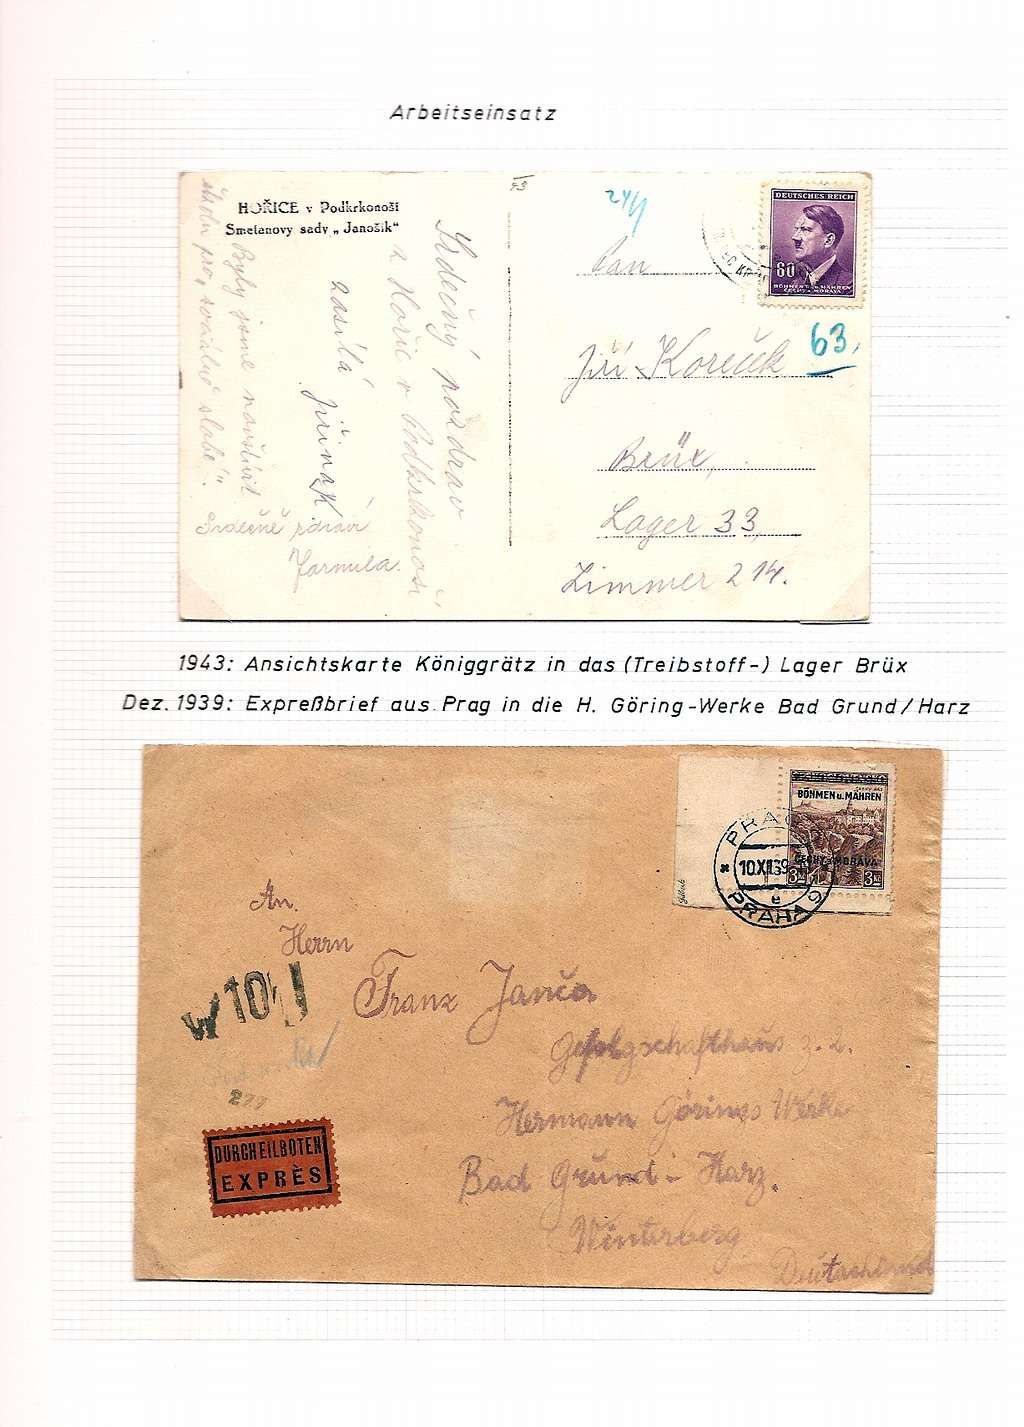 Arbeitseinsatz
43
24/1
HOŘICE v Podkrkonoší
Smetanovy sady „Janošík"
DEUTSCHES REICH
60
BÖHMEN u. MÄHREN
ČECHY a MORAVA
Srdečný pozdrav
z Hořic v Podkrkonoší
zasílá
Jiřina K.
Byly jsme navštívit
Srdečně zdraví
Jarmila.
Pan
Jiří Koreček
63.
Brüx,
Lager 33,
Zimmer 214.
1943: Ansichtskarte Königgrätz in das (Treibstoff-) Lager Brüx
Dez. 1939: Expreßbrief aus Prag in die H. Göring-Werke Bad Grund/Harz
ČESKOSLOVENSKO
BÖHMEN u. MÄHREN
ČECHY a MORAVA
3 Kč 3 Kč
PRAG
10.XII.39
e
PRAHA 9
An
Herrn
Franz Janča
Gefolgschafthaus z. 2.
Hermann Görings Werke
Bad Grund - Harz.
Winterberg
Deutschland
W 10
277
DURCH EILBOTEN
EXPRÈS